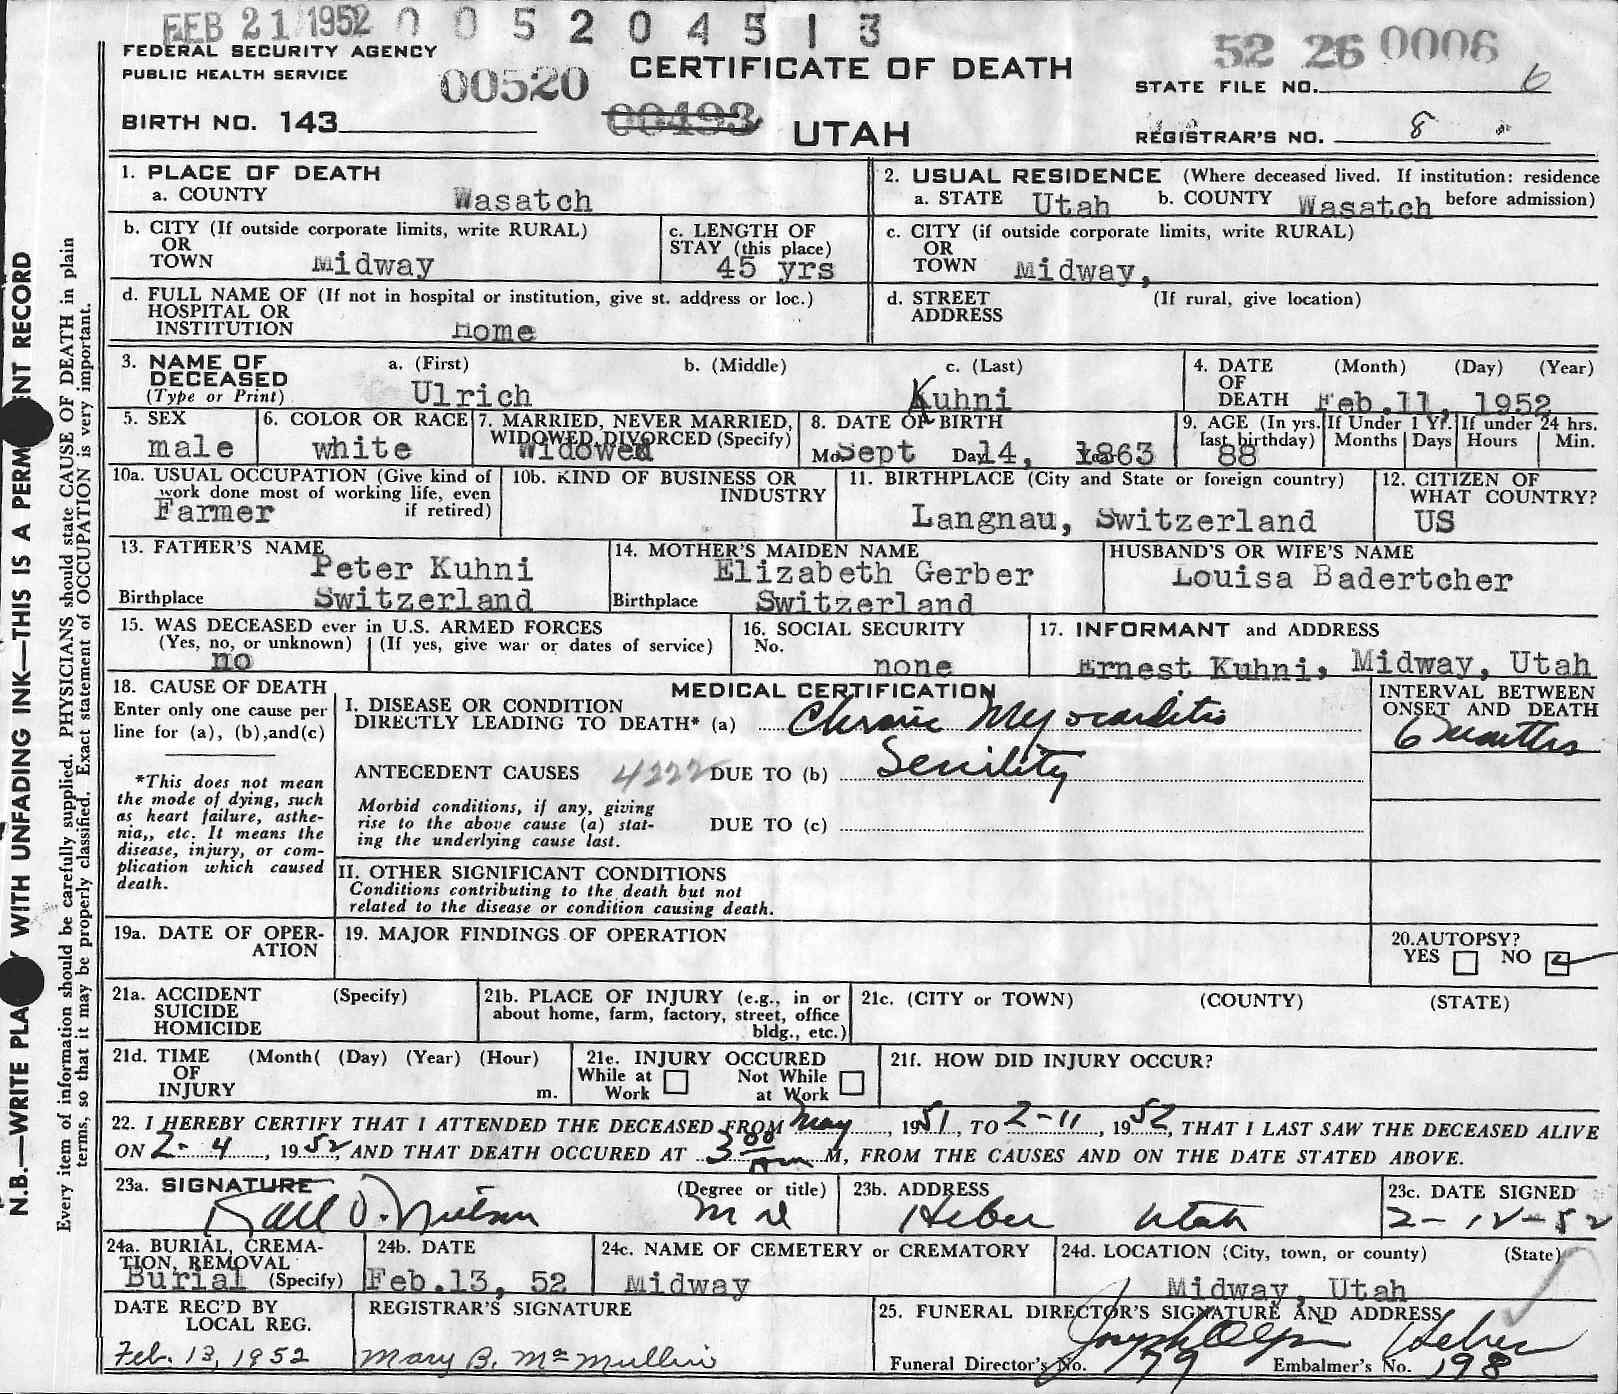 FEB 21 1952 0 0 5 2 0 4 5 1 3
52 26 0006
FEDERAL SECURITY AGENCY
PUBLIC HEALTH SERVICE
00520
CERTIFICATE OF DEATH
STATE FILE NO. 6
BIRTH NO. 143
00493
UTAH
REGISTRAR'S NO. 8
1. PLACE OF DEATH
a. COUNTY Wasatch
2. USUAL RESIDENCE (Where deceased lived. If institution: residence
a. STATE Utah b. COUNTY Wasatch before admission)
b. CITY (If outside corporate limits, write RURAL)
OR
TOWN Midway
c. LENGTH OF
STAY (this place)
45 yrs
c. CITY (if outside corporate limits, write RURAL)
OR
TOWN Midway,
d. FULL NAME OF (If not in hospital or institution, give st. address or loc.)
HOSPITAL OR
INSTITUTION Home
d. STREET (If rural, give location)
ADDRESS
3. NAME OF
DECEASED
(Type or Print)
a. (First)
Ulrich
b. (Middle)
c. (Last)
Kuhni
4. DATE (Month) (Day) (Year)
OF
DEATH Feb.11, 1952
5. SEX
male
6. COLOR OR RACE
white
7. MARRIED, NEVER MARRIED,
WIDOWED, DIVORCED (Specify)
Widowed
8. DATE OF BIRTH
Mo Sept Day 14, Year 1863
9. AGE (In yrs.
last birthday)
88
If Under 1 Yr.
Months Days
If under 24 hrs.
Hours Min.
10a. USUAL OCCUPATION (Give kind of
work done most of working life, even
if retired)
Farmer
10b. KIND OF BUSINESS OR
INDUSTRY
11. BIRTHPLACE (City and State or foreign country)
Langnau, Switzerland
12. CITIZEN OF
WHAT COUNTRY?
US
13. FATHER'S NAME
Peter Kuhni
Birthplace Switzerland
14. MOTHER'S MAIDEN NAME
Elizabeth Gerber
Birthplace Switzerland
HUSBAND'S OR WIFE'S NAME
Louisa Badertcher
15. WAS DECEASED ever in U.S. ARMED FORCES
(Yes, no, or unknown) (If yes, give war or dates of service)
no
16. SOCIAL SECURITY
No.
none
17. INFORMANT and ADDRESS
Ernest Kuhni, Midway, Utah
18. CAUSE OF DEATH
Enter only one cause per
line for (a), (b),and(c)
*This does not mean
the mode of dying, such
as heart failure, asthe-
nia,, etc. It means the
disease, injury, or com-
plication which caused
death.
MEDICAL CERTIFICATION
I. DISEASE OR CONDITION
DIRECTLY LEADING TO DEATH* (a) Chronic Myocarditis
ANTECEDENT CAUSES 4222 DUE TO (b) Senility
Morbid conditions, if any, giving
rise to the above cause (a) stat-
ing the underlying cause last.
DUE TO (c)
INTERVAL BETWEEN
ONSET AND DEATH
6 months
II. OTHER SIGNIFICANT CONDITIONS
Conditions contributing to the death but not
related to the disease or condition causing death.
19a. DATE OF OPER-
ATION
19. MAJOR FINDINGS OF OPERATION
20.AUTOPSY?
YES NO
21a. ACCIDENT (Specify)
SUICIDE
HOMICIDE
21b. PLACE OF INJURY (e.g., in or
about home, farm, factory, street, office
bldg., etc.)
21c. (CITY or TOWN) (COUNTY) (STATE)
21d. TIME (Month( (Day) (Year) (Hour)
OF
INJURY m.
21e. INJURY OCCURED
While at Not While
Work at Work
21f. HOW DID INJURY OCCUR?
22. I HEREBY CERTIFY THAT I ATTENDED THE DECEASED FROM May, 1951, TO 2-11, 1952, THAT I LAST SAW THE DECEASED ALIVE
ON 2-4, 1952, AND THAT DEATH OCCURED AT 3 00 Am M, FROM THE CAUSES AND ON THE DATE STATED ABOVE.
23a. SIGNATURE (Degree or title)
Karl O. Nielson M D
23b. ADDRESS
Heber Utah
23c. DATE SIGNED
2-12-52
24a. BURIAL, CREMA-
TION, REMOVAL
Burial (Specify)
24b. DATE
Feb.13, 52
24c. NAME OF CEMETERY or CREMATORY
Midway
24d. LOCATION (City, town, or county) (State)
Midway, Utah
DATE REC'D BY
LOCAL REG.
Feb. 13, 1952
REGISTRAR'S SIGNATURE
Mary B. McMullin
25. FUNERAL DIRECTOR'S SIGNATURE AND ADDRESS
Heber
Funeral Director's No. 179 Embalmer's No. 198
N.B.—WRITE PLA Y WITH UNFADING INK—THIS IS A PERM ENT RECORD
Every item of information should be carefully supplied. PHYSICIANS should state CAUSE OF DEATH in plain
terms, so that it may be properly classified. Exact statement of OCCUPATION is very important.